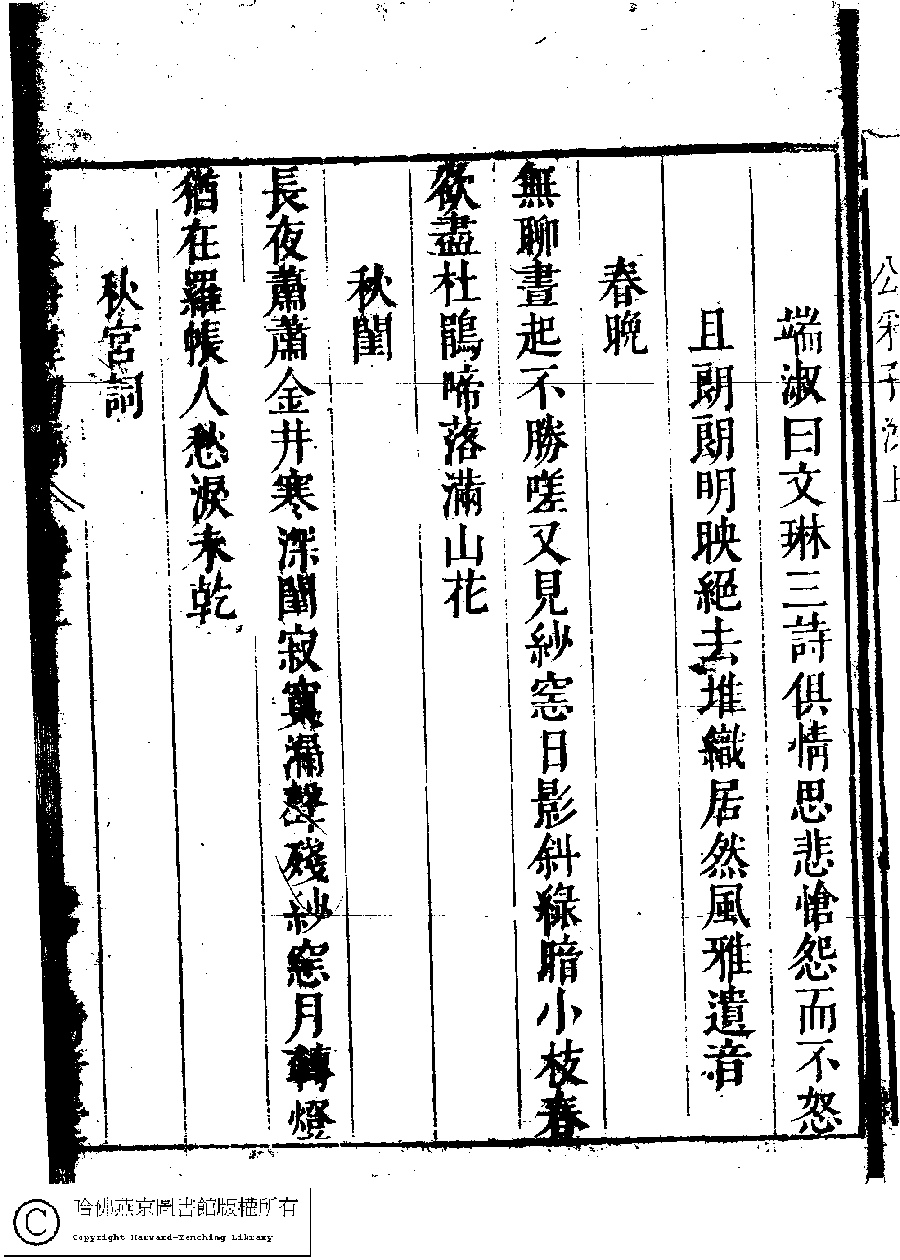 端淑曰文琳三詩俱情思悲愴怨而不怒
且朗朗明映絕去堆織居然風雅遺音
春晚
無聊晝起不勝嗟又見紗窓日影斜綠暗小枝春
欲盡杜鵑啼落滿山花
秋閨
長夜蕭蕭金井寒深閨寂寞漏聲殘紗窓月轉燈
猶在羅帳人愁淚未乾
秋宮詞
哈佛燕京圖書館版權所有
Copyright Harvard-Yenching Library